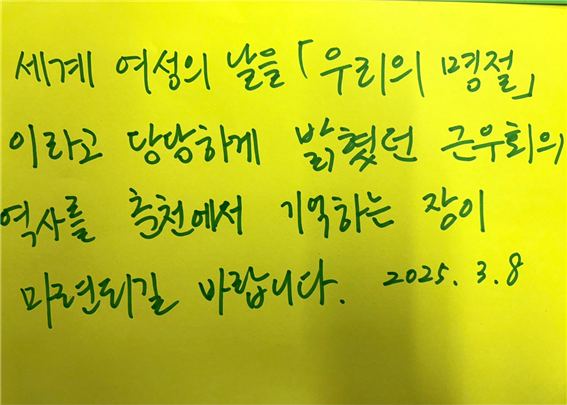 세계 여성의 날을 「우리의 명절」
이라고 당당하게 밝혔던 근우회의
역사를 춘천에서 기억하는 장이
마련되길 바랍니다. 2025. 3. 8